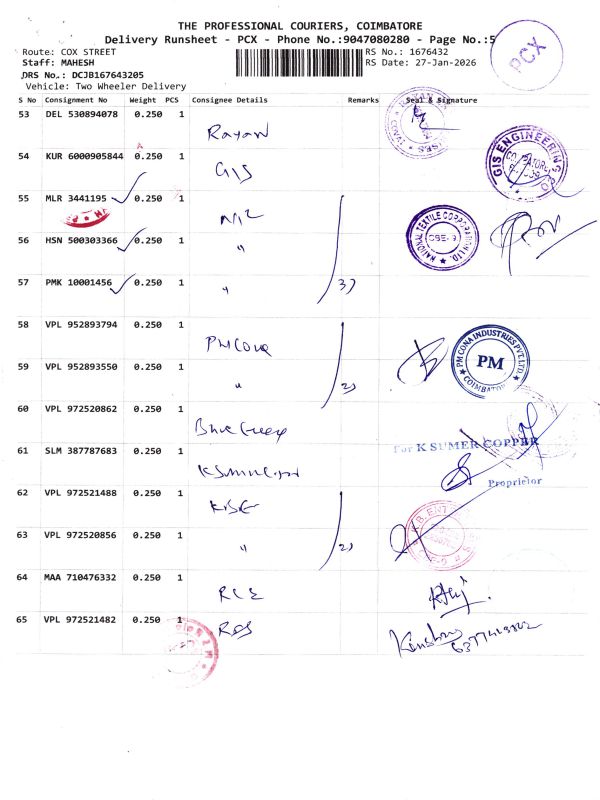 THE PROFESSIONAL COURIERS, COIMBATORE
Delivery Runsheet - PCX - Phone No.:9047080280 - Page No.:5
PCX
Route: COX STREET
RS No.: 1676432
Staff: MAHESH
RS Date: 27-Jan-2026
DRS No.: DCJB167643205
Vehicle: Two Wheeler Delivery
S No Consignment No Weight PCS Consignee Details Remarks Seal & Signature
53 DEL 530894078 0.250 1
Rayan
54 KUR 6000905844 0.250 1
GIS
GIS ENGINEERING
55 MLR 3441195 0.250 1
NATIONAL TEXTILE CORPORATION LTD.
56 HSN 500303366 0.250 1
"
57 PMK 10001456 0.250 1
" 3)
58 VPL 952893794 0.250 1
PM CONA
PM CONA INDUSTRIES PVT. LTD.
PM
59 VPL 952893550 0.250 1
" 2)
60 VPL 972520862 0.250 1
For K SUMER COPPER
61 SLM 387787683 0.250 1
Proprietor
62 VPL 972521488 0.250 1
63 VPL 972520856 0.250 1
" 2)
64 MAA 710476332 0.250 1
65 VPL 972521482 0.250 1